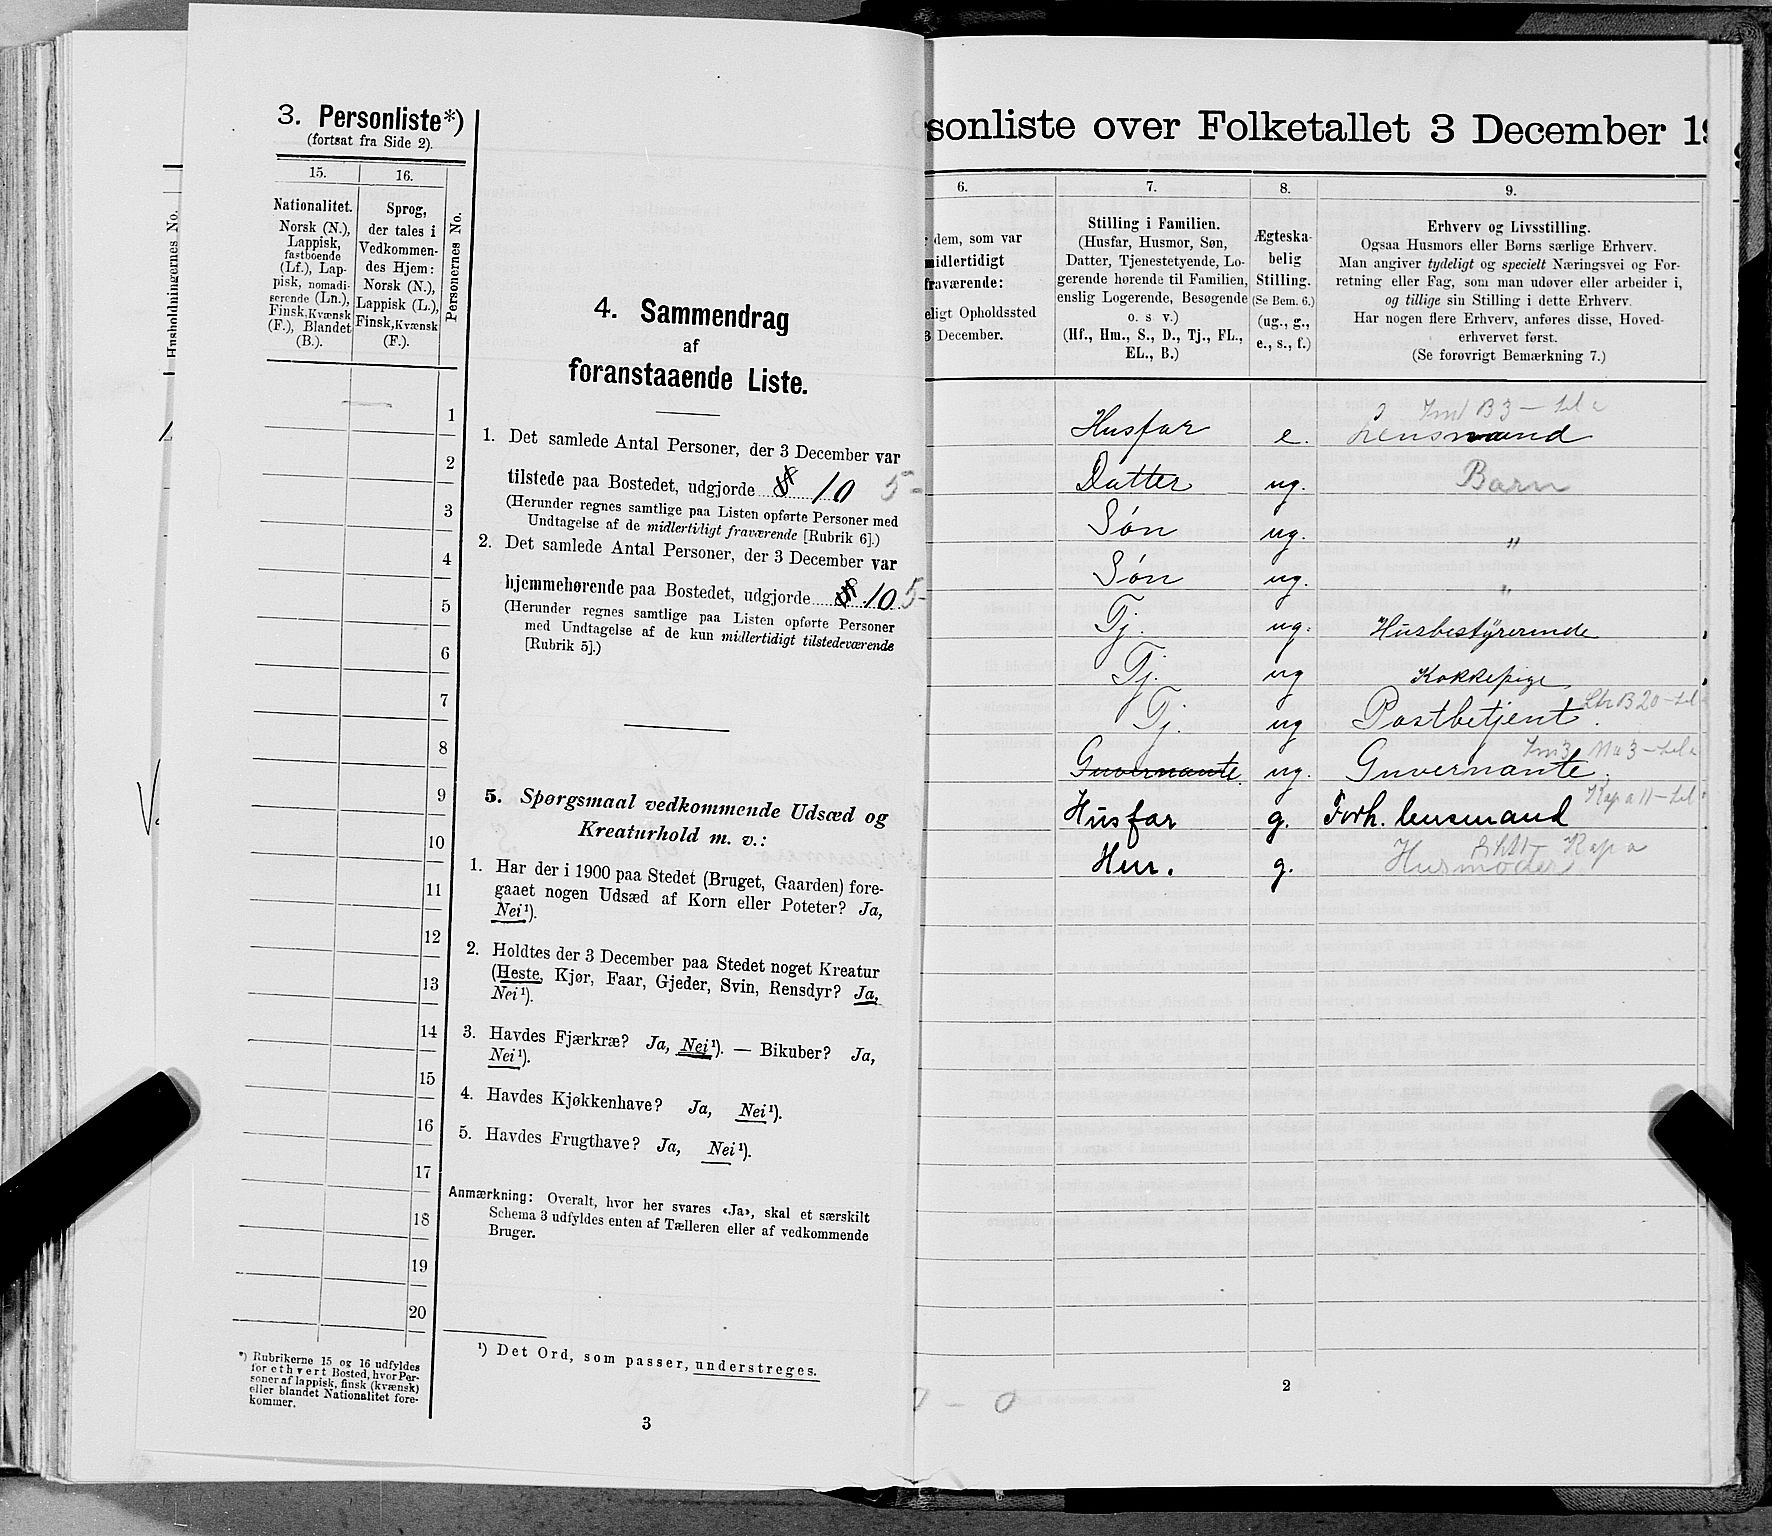 3. Personliste*)
(fortsat fra Side 2).
15.
16.
Nationalitet.
Norsk (N.),
Lappisk,
fastboende
(Lf.), Lap-
pisk, nomadi-
serende (Ln.),
Finsk, Kvænsk
(F.), Blandet
(B.).
Sprog,
der tales i
Vedkommen-
des Hjem:
Norsk (N.),
Lappisk (L.),
Finsk, Kvænsk
(F.).
Personernes No.
Husholdningernes No.
1
2
3
4
5
6
7
8
9
10
11
12
13
14
15
16
17
18
19
20
*) Rubrikerne 15 og 16 udfyldes
for ethvert Bosted, hvor Per-
soner af lappisk, finsk (kvænsk)
eller blandet Nationalitet fore-
kommer.
4. Sammendrag
af
foranstaaende Liste.
1. Det samlede Antal Personer, der 3 December var
tilstede paa Bostedet, udgjorde 10 5-
(Herunder regnes samtlige paa Listen opførte Personer med
Undtagelse af de midlertidigt fraværende [Rubrik 6].)
2. Det samlede Antal Personer, der 3 December var
hjemmehørende paa Bostedet, udgjorde 10 5-
(Herunder regnes samtlige paa Listen opførte Personer
med Undtagelse af de kun midlertidigt tilstedeværende
[Rubrik 5].)
5. Spørgsmaal vedkommende Udsæd og
Kreaturhold m. v.:
1. Har der i 1900 paa Stedet (Bruget, Gaarden) fore-
gaaet nogen Udsæd af Korn eller Poteter? Ja,
Nei¹).
2. Holdtes der 3 December paa Stedet noget Kreatur
(Heste, Kjør, Faar, Gjeder, Svin, Rensdyr? Ja,
Nei¹).
3. Havdes Fjærkræ? Ja, Nei¹). — Bikuber? Ja,
Nei¹).
4. Havdes Kjøkkenhave? Ja, Nei¹).
5. Havdes Frugthave? Ja, Nei¹).
Anmærkning: Overalt, hvor her svares «Ja», skal et særskilt
Schema 3 udfyldes enten af Tælleren eller af vedkommende
Bruger.
¹) Det Ord, som passer, understreges.
3
sonliste over Folketallet 3 December 19
6.
dem, som var
midlertidigt
fraværende:
eligt Opholdssted
3 December.
7.
Stilling i Familien.
(Husfar, Husmor, Søn,
Datter, Tjenestetyende, Lo-
gerende hørende til Familien,
enslig Logerende, Besøgende
o. s v.)
(Hf., Hm., S., D., Tj., FL.,
EL., B.)
8.
Ægteska-
belig
Stilling.
(Se Bem. 6.)
(ug., g.,
e., s., f.)
9.
Erhverv og Livsstilling.
Ogsaa Husmors eller Børns særlige Erhverv.
Man angiver tydeligt og specielt Næringsvei og For-
retning eller Fag, som man udøver eller arbeider i,
og tillige sin Stilling i dette Erhverv.
Har nogen flere Erhverv, anføres disse, Hoved-
erhvervet først.
(Se forøvrigt Bemærkning 7.)
Husfar e. Lensmand
Datter ug. Barn
Søn ug. "
Søn ug. "
Tj. ug. Husbestyrerinde
Tj. ug Kokkepige
Tj. ug Postbetjent.
Guvernante ug. Guvernante.
Husfar g. Forh. lensmand
Hm. g. Husmoder
2
0 - 0